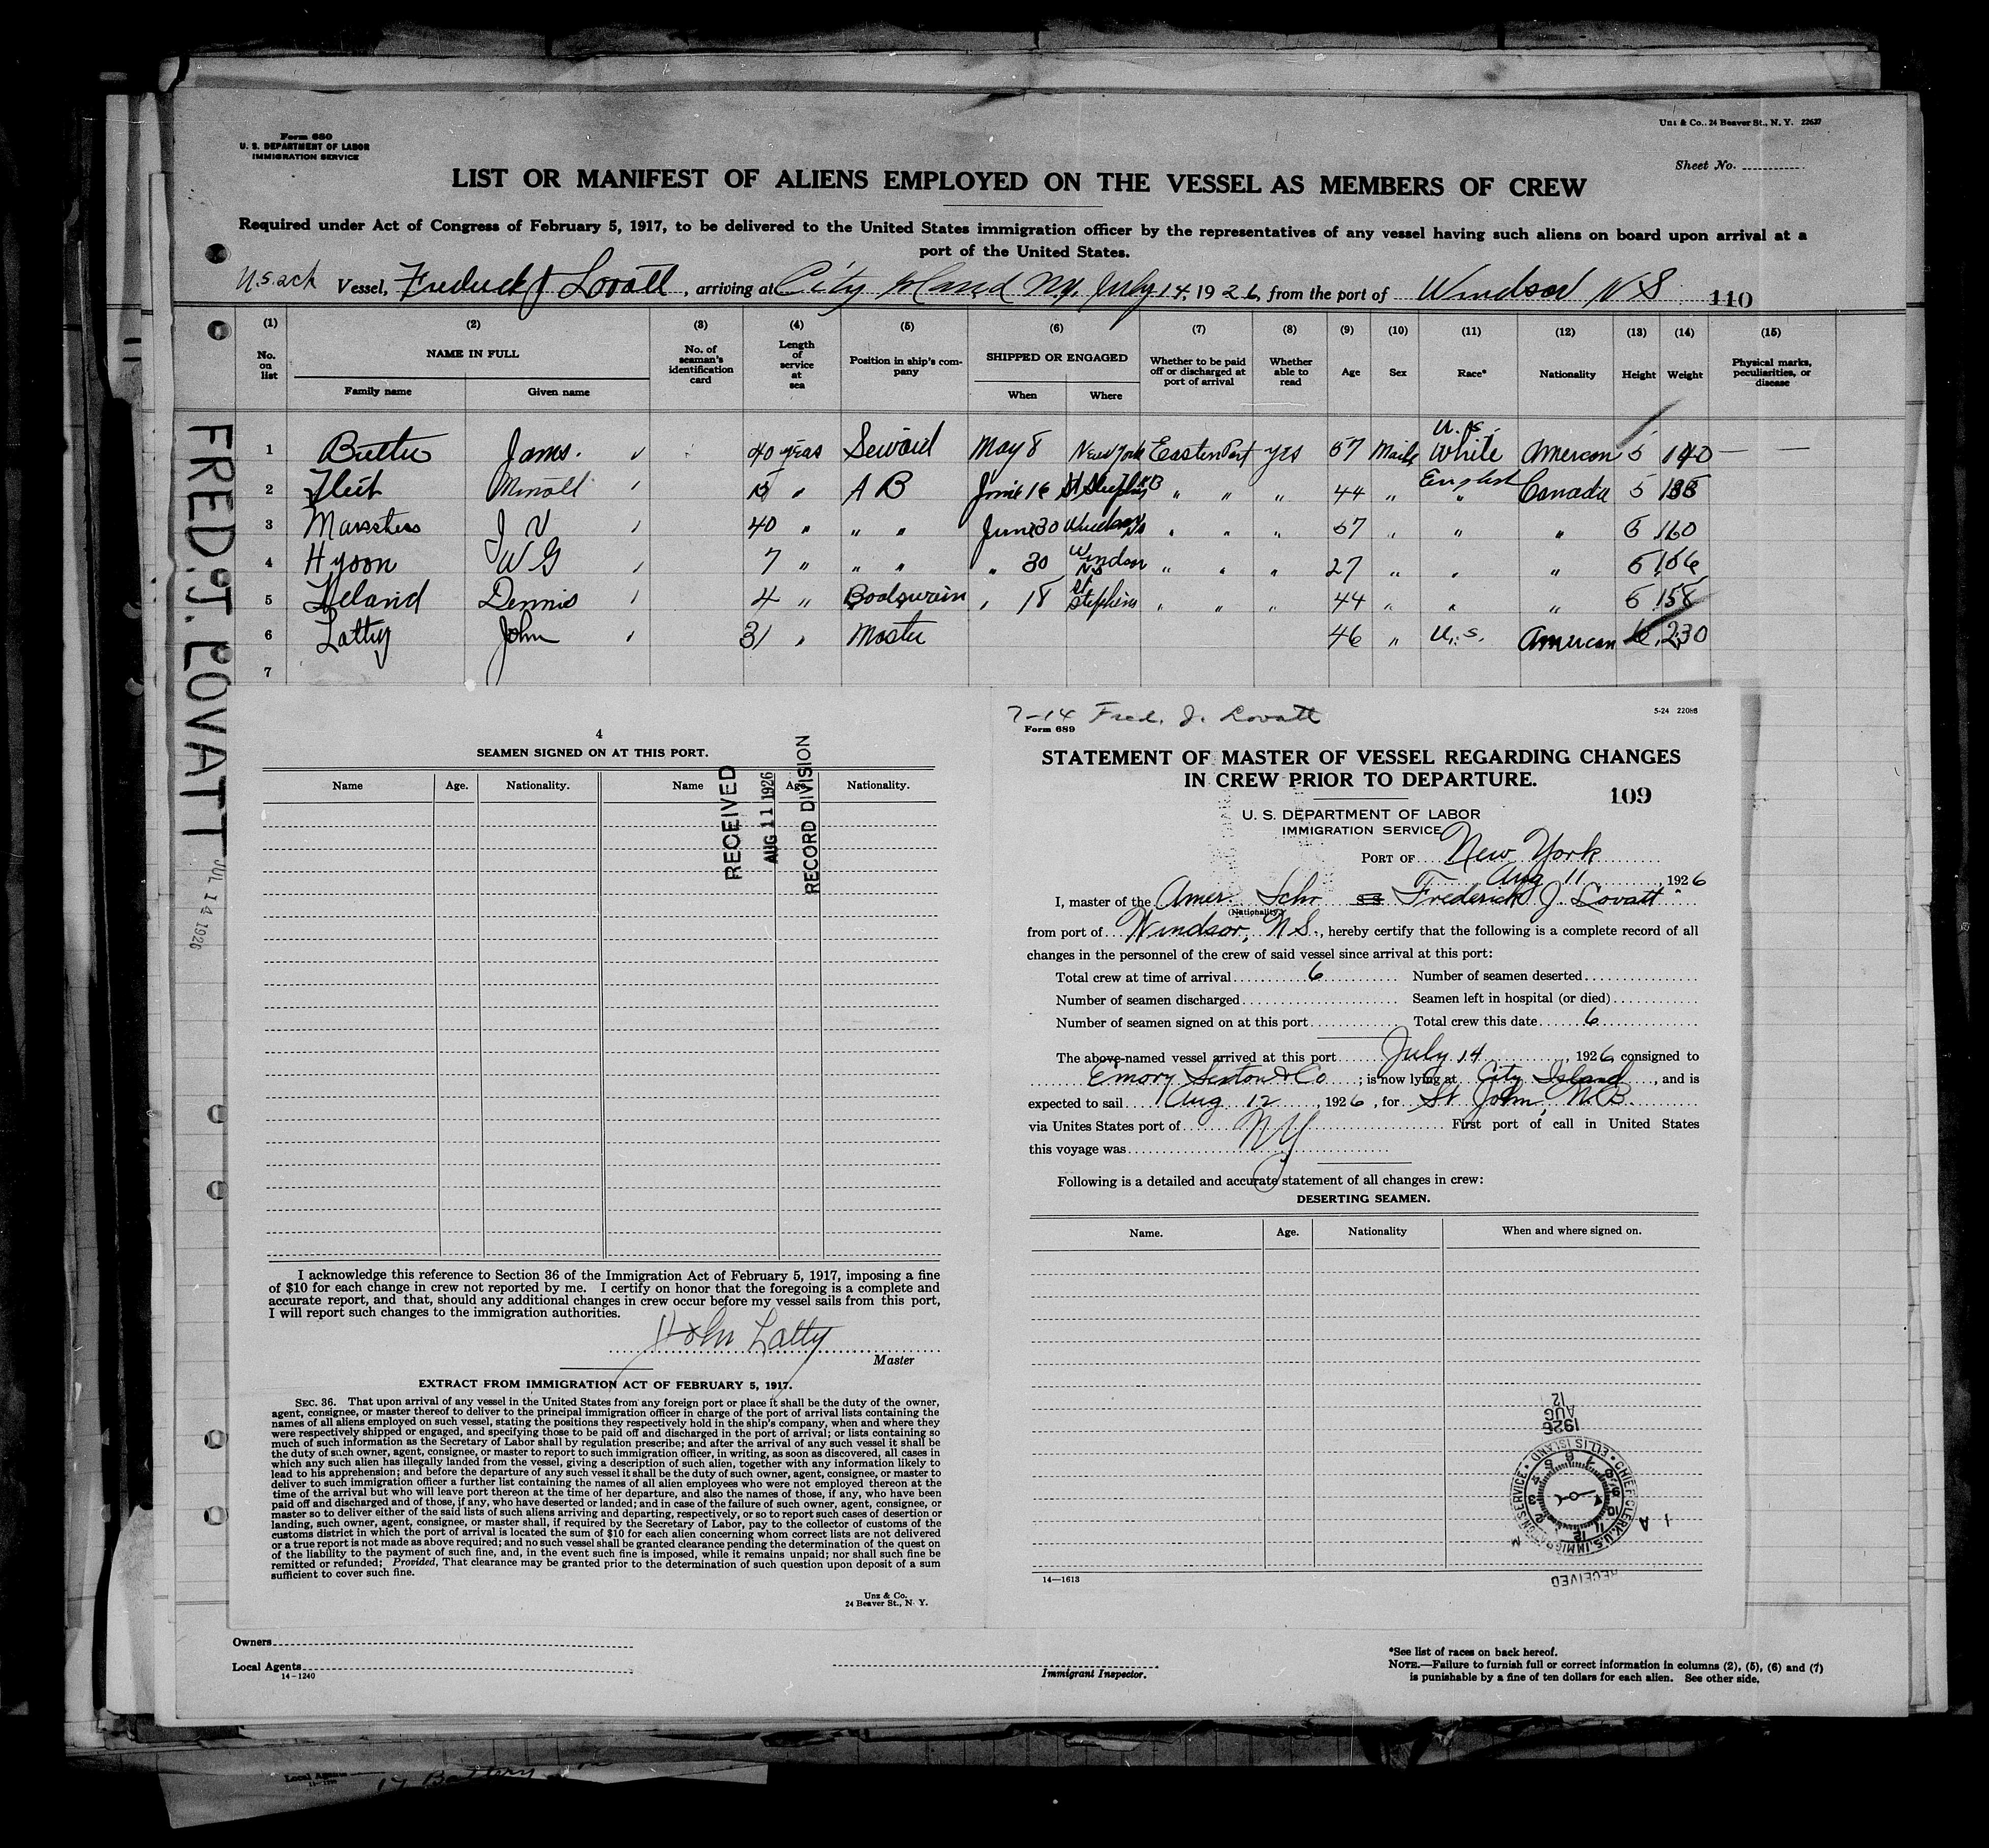 Form 680
U. S. DEPARTMENT OF LABOR
IMMIGRATION SERVICE
Unz & Co., 24 Beaver St., N. Y. 22637
Sheet No.
LIST OR MANIFEST OF ALIENS EMPLOYED ON THE VESSEL AS MEMBERS OF CREW
Required under Act of Congress of February 5, 1917, to be delivered to the United States immigration officer by the representatives of any vessel having such aliens on board upon arrival at a
port of the United States.
Vessel, Frederick J Lovatt, arriving at City Island NY, July 14, 1926, from the port of Windsor NS 110
(1) (2) (3) (4) (5) (6) (7) (8) (9) (10) (11) (12) (13) (14) (15)
No. on list NAME IN FULL Family name Given name No. of seaman's identification card Length of service at sea Position in ship's company SHIPPED OR ENGAGED When Where Whether to be paid off or discharged at port of arrival Whether able to read Age Sex Race* Nationality Height Weight Physical marks, peculiarities, or disease
U.S.
1 James 40 years May 8 New York yes 57 White American 5 190 — —
2 " A B June 16 " " " 44 " English " Canada 5
3 J V 40 " " " June 30 " " " 57 " " " 6 160
4 W G 7 " " " " 30 Windsor NS " " " 27 " " " 6
5 Dennis 4 " " 18 St Stephens " " " 44 " " " 6 158
6 Latty John 31 " Master 46 " U.S. American 6 230
7
FRED. J. LOVATT JUL 14 1926
4
SEAMEN SIGNED ON AT THIS PORT.
Name Age. Nationality. Name Age. Nationality.
RECEIVED
AUG 11 1926
RECORD DIVISION
I acknowledge this reference to Section 36 of the Immigration Act of February 5, 1917, imposing a fine
of $10 for each change in crew not reported by me. I certify on honor that the foregoing is a complete and
accurate report, and that, should any additional changes in crew occur before my vessel sails from this port,
I will report such changes to the immigration authorities.
John Latty
Master
EXTRACT FROM IMMIGRATION ACT OF FEBRUARY 5, 1917.
SEC. 36. That upon arrival of any vessel in the United States from any foreign port or place it shall be the duty of the owner,
agent, consignee, or master thereof to deliver to the principal immigration officer in charge of the port of arrival lists containing the
names of all aliens employed on such vessel, stating the positions they respectively hold in the ship's company, when and where they
were respectively shipped or engaged, and specifying those to be paid off and discharged in the port of arrival; or lists containing so
much of such information as the Secretary of Labor shall by regulation prescribe; and after the arrival of any such vessel it shall be
the duty of such owner, agent, consignee, or master to report to such immigration officer, in writing, as soon as discovered, all cases in
which any such alien has illegally landed from the vessel, giving a description of such alien, together with any information likely to
lead to his apprehension; and before the departure of any such vessel it shall be the duty of such owner, agent, consignee, or master to
deliver to such immigration officer a further list containing the names of all alien employees who were not employed thereon at the
time of the arrival but who will leave port thereon at the time of her departure, and also the names of those, if any, who have been
paid off and discharged and of those, if any, who have deserted or landed; and in case of the failure of such owner, agent, consignee, or
master so to deliver either of the said lists of such aliens arriving and departing, respectively, or so to report such cases of desertion or
landing, such owner, agent, consignee, or master shall, if required by the Secretary of Labor, pay to the collector of customs of the
customs district in which the port of arrival is located the sum of $10 for each alien concerning whom correct lists are not delivered
or a true report is not made as above required; and no such vessel shall be granted clearance pending the determination of the quest on
of the liability to the payment of such fine, and, in the event such fine is imposed, while it remains unpaid; nor shall such fine be
remitted or refunded; Provided, That clearance may be granted prior to the determination of such question upon deposit of a sum
sufficient to cover such fine.
Unz & Co.
24 Beaver St., N. Y.
7-14 Fred. J. Lovatt
Form 689
5-24
STATEMENT OF MASTER OF VESSEL REGARDING CHANGES
IN CREW PRIOR TO DEPARTURE.
109
U. S. DEPARTMENT OF LABOR
IMMIGRATION SERVICE
PORT OF New York
Aug 11, 1926
I, master of the Amer. Schr SS Frederick J. Lovatt
(Nationality)
from port of Windsor, N.S., hereby certify that the following is a complete record of all
changes in the personnel of the crew of said vessel since arrival at this port:
Total crew at time of arrival 6 Number of seamen deserted
Number of seamen discharged Seamen left in hospital (or died)
Number of seamen signed on at this port Total crew this date 6
The above-named vessel arrived at this port July 14, 1926, consigned to
Emory Sexton & Co; is now lying at City Island, and is
expected to sail Aug 12, 1926, for St John, N.B.
via Unites States port of NY First port of call in United States
this voyage was
Following is a detailed and accurate statement of all changes in crew:
DESERTING SEAMEN.
Name. Age. Nationality When and where signed on.
1926
AUG
12
CHIEF CLERK, U.S. IMMIGRATION SERVICE • ELLIS ISLAND •
RECEIVED
14—1613
Owners
Local Agents
14-1240
Immigrant Inspector.
*See list of races on back hereof.
NOTE.—Failure to furnish full or correct information in columns (2), (5), (6) and (7)
is punishable by a fine of ten dollars for each alien. See other side.
Local Agents
17 Battery